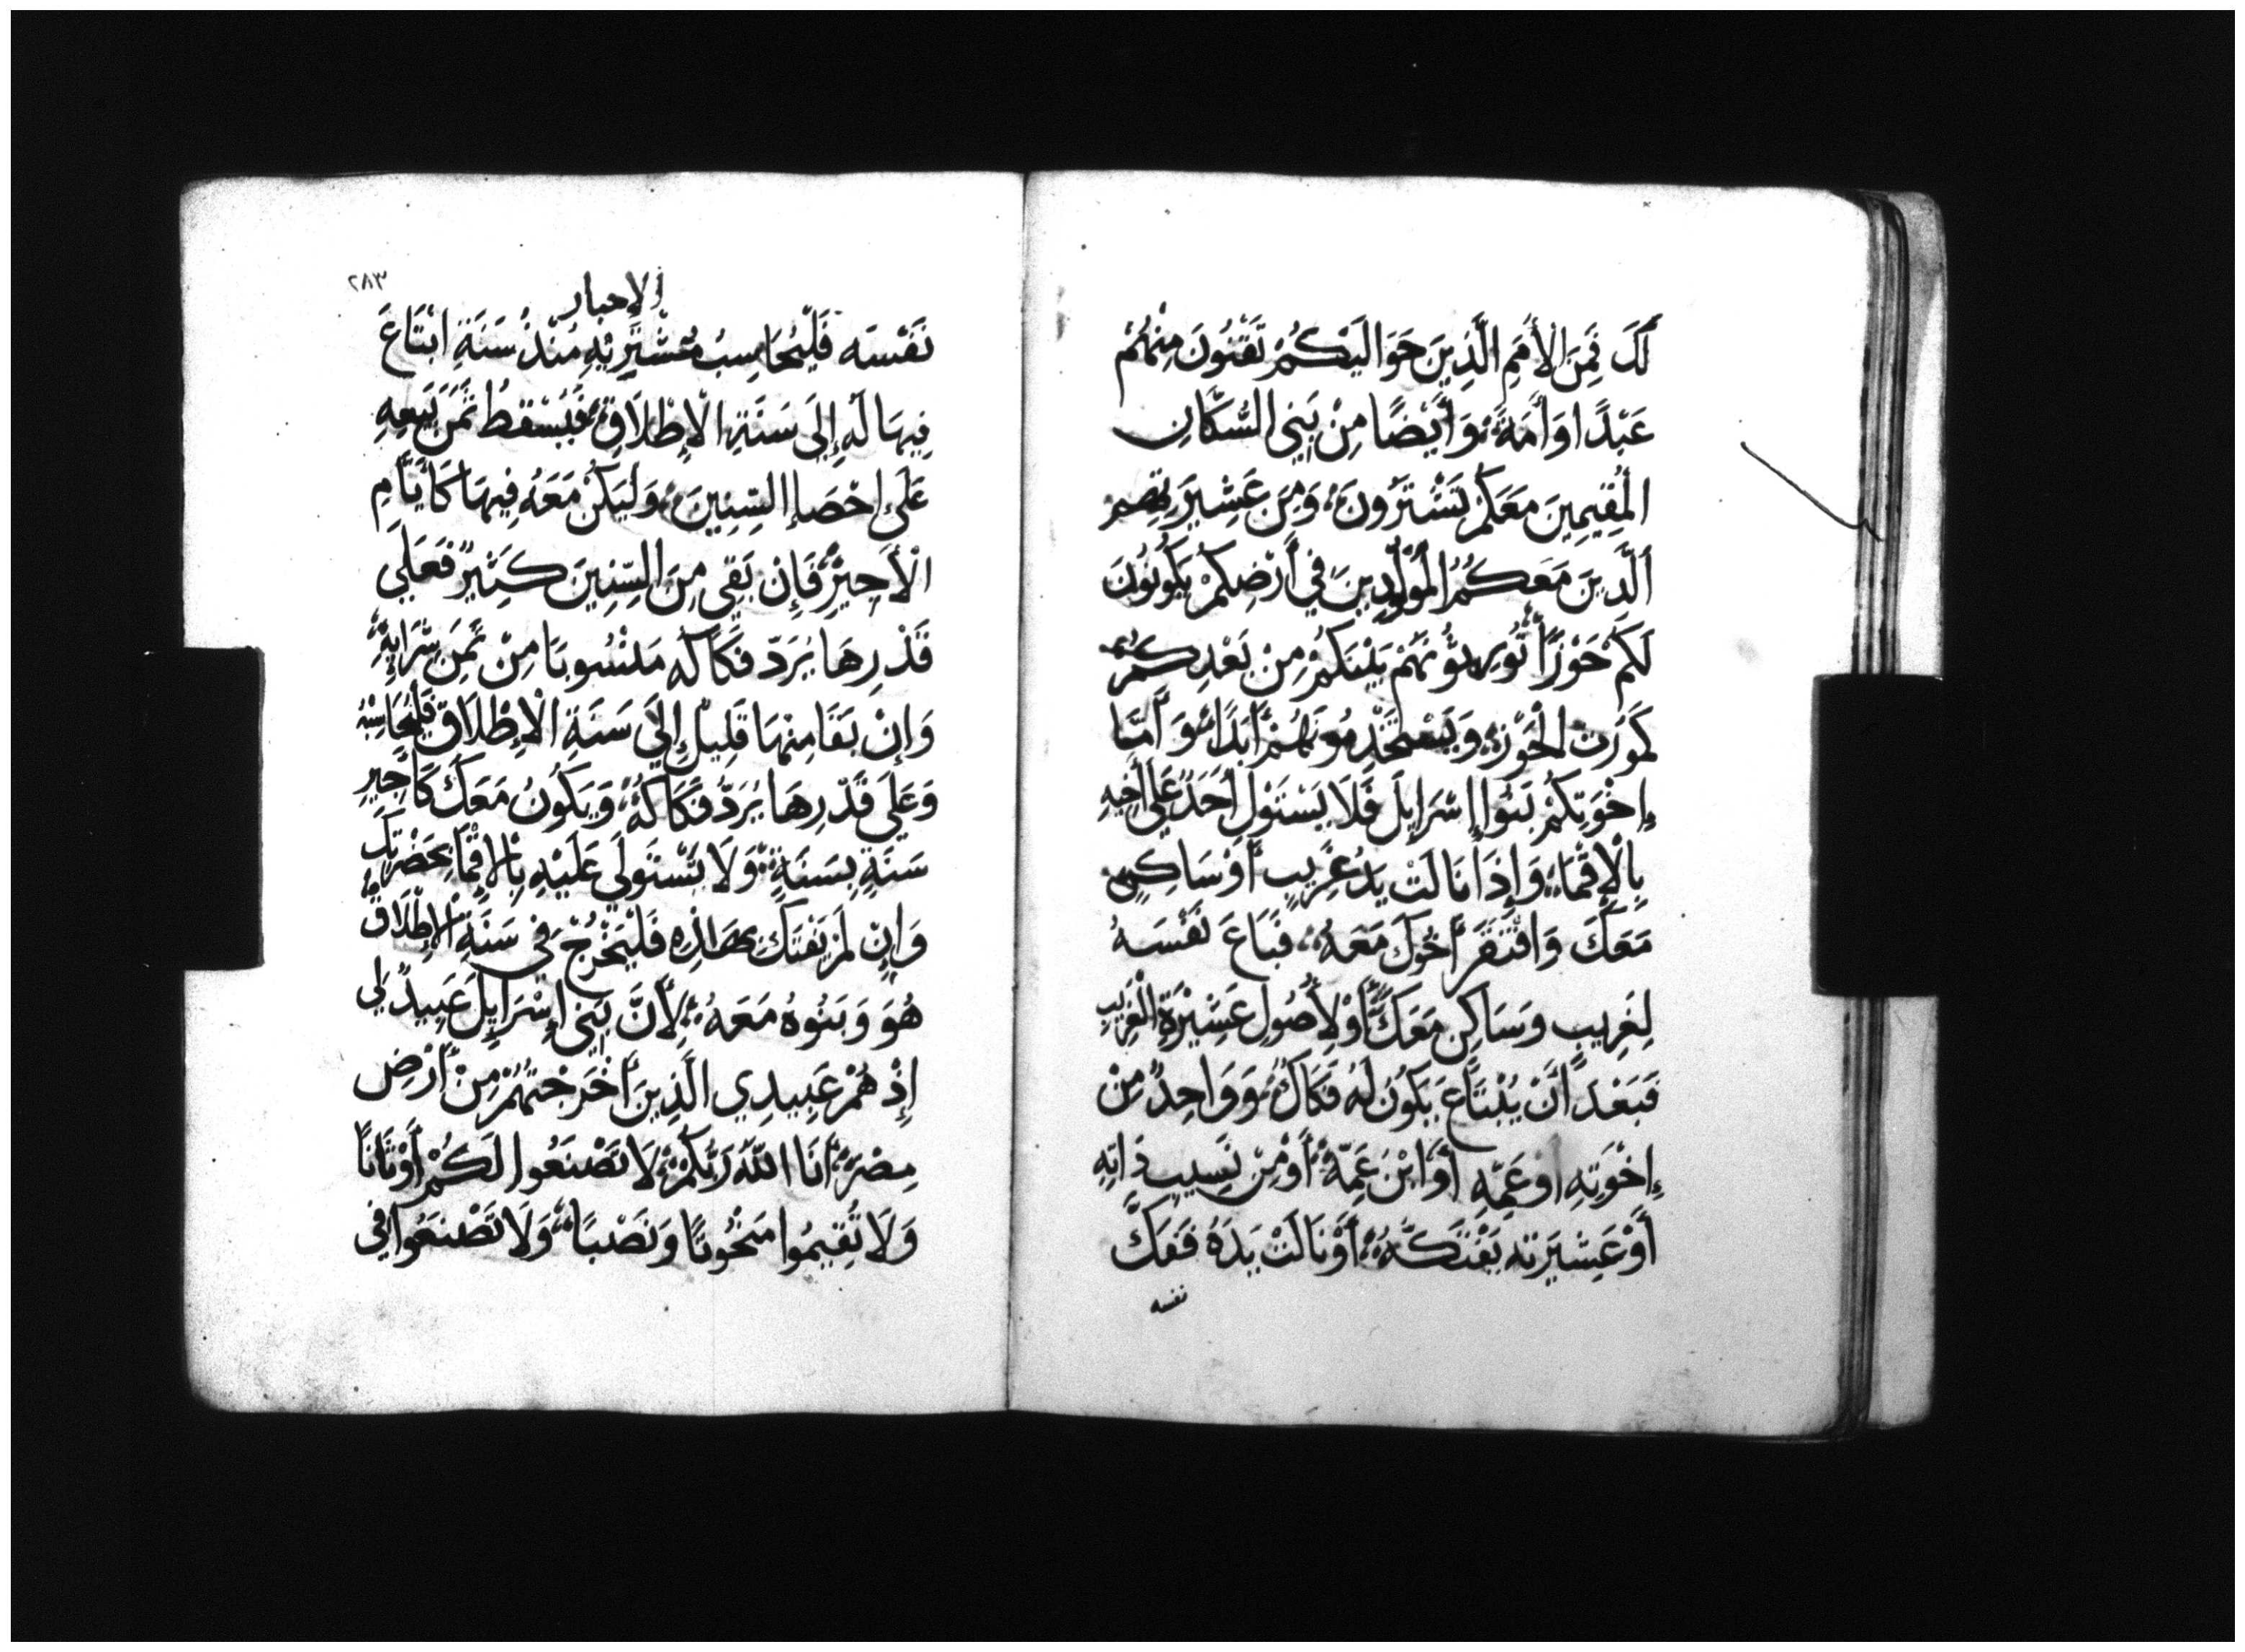 لَكَ فَمِنَ الْأُمَمِ الَّذِينَ حَوَالَيْكُمْ تَقْنُونَ مِنْهُمْ
عَبْدًا وَأَمَةً وَأَيْضًا مِنْ بَنِي السُّكَّانِ
الْمُقِيمِينَ مَعَكُمْ تَشْتَرُونَ وَمِنْ عَشِيرَتِهِمْ
الَّذِينَ مَعَكُمُ الْمُوَلَّدِينَ فِي أَرْضِكُمْ يَكُونُونَ
لَكُمْ حَوْزًا تُورِثُونَهُمْ بَيْنَكُمْ مِنْ بَعْدِكُمْ
كَمَوْرِثِ الْحَوْزِ وَيَسْتَخْدِمُونَهُمْ أَبَدًا وَأَمَّا
إِخْوَتِكُمْ بَنُوا إِسْرَايِلَ فَلَا يَسْتَوْلِ أَحَدٌ عَلَى أَخِيهِ
بِالْإِقْمَاءِ وَإِذَا نَالَتْ يَدُ غَرِيبٍ أَوْ سَاكِنٍ
مَعَكَ وَافْتَقَرَ أَخُوكَ مَعَهُ فَبَاعَ نَفْسَهُ
لِغَرِيبٍ وَسَاكِنٍ مَعَكَ أَوْ لِأُصُولِ عَشِيْرَةِ الْغَرِيبِ
فَبَعْدَ أَنْ يُبْتَاعَ يَكُونُ لَهُ فَكَاكٌ وَوَاحِدٌ مِنْ
إِخْوَتِهِ أَوْ عَمِّهِ أَوِ ابْنِ عَمِّهِ أَوْ مِنْ نَسِيبِ ذَاتِهِ
أَوْ عَشِيرَتِهِ يَفْتَكُّهُ أَوْ نَالَتْ يَدَهُ فَفَكَّ
نفسه
٢٨٣
الاحبار
نَفْسَه فَلْيُحَاسِبْ مُشْتَرِيْهِ مُنْذُ سَنَةِ ابْتَاعَ
فِيهَا لَهُ إِلَى سَنَةِ الْإِطْلَاقِ فَيُسْقِطُ ثَمَنَ بَيْعِهِ
عَلَى إِحْصَاءِ السِّنِينَ وَلْيَكُنْ مَعَهُ فِيهَا كَأَيَّامِ
الْأَجِيْرِ فَإِنْ بَقِيَ مِنَ السِّنِينَ كَثِيرٌ فَعَلَى
قَدْرِهَا يُرَدّ فَكَاكَهُ مَنْسُوبًا مِنْ ثَمَنِ شِرَايِهِ
وَإِنْ بَقَا مِنْهَا قَلِيلٌ إِلَى سَنَةِ الْإِطْلَاقِ فَلْيُحَاسِبْهُ
وَعَلَى قَدْرِهَا يُرَدُّ فَكَاكَهُ وَيَكُونُ مَعَكَ كَأَجِيرٍ
سَنَةٍ بِسَنَةٍ وَلَا تَسْتَولِي عَلَيْهِ بِالْإِقْمَاءِ بِحَضْرَتِكَ
وَإِنْ لَمْ يَفْتَكَّ بِهَاذِهِ فَلْيَخْرُجْ فِي سَنَةِ الْإِطْلَاقِ
هُوَ وَبَنُوهُ مَعَهُ لِأَنَّ بَنِي إِسْرَايِلَ عَبِيدٌ لِي
إِذْ هُمْ عَبِيدِي الَّذِينَ أَخْرَجْتُهُمْ مِنْ أَرْضِ
مِصْرَ أَنَا اللَّهُ رَبُّكُمْ لَا تَصْنَعُوا لَكُمْ أَوْثَانًا
وَلَا تُقِيمُوا مَنْحُوتًا وَنَصْبًا وَلَا تَصْنَعُوا فِي